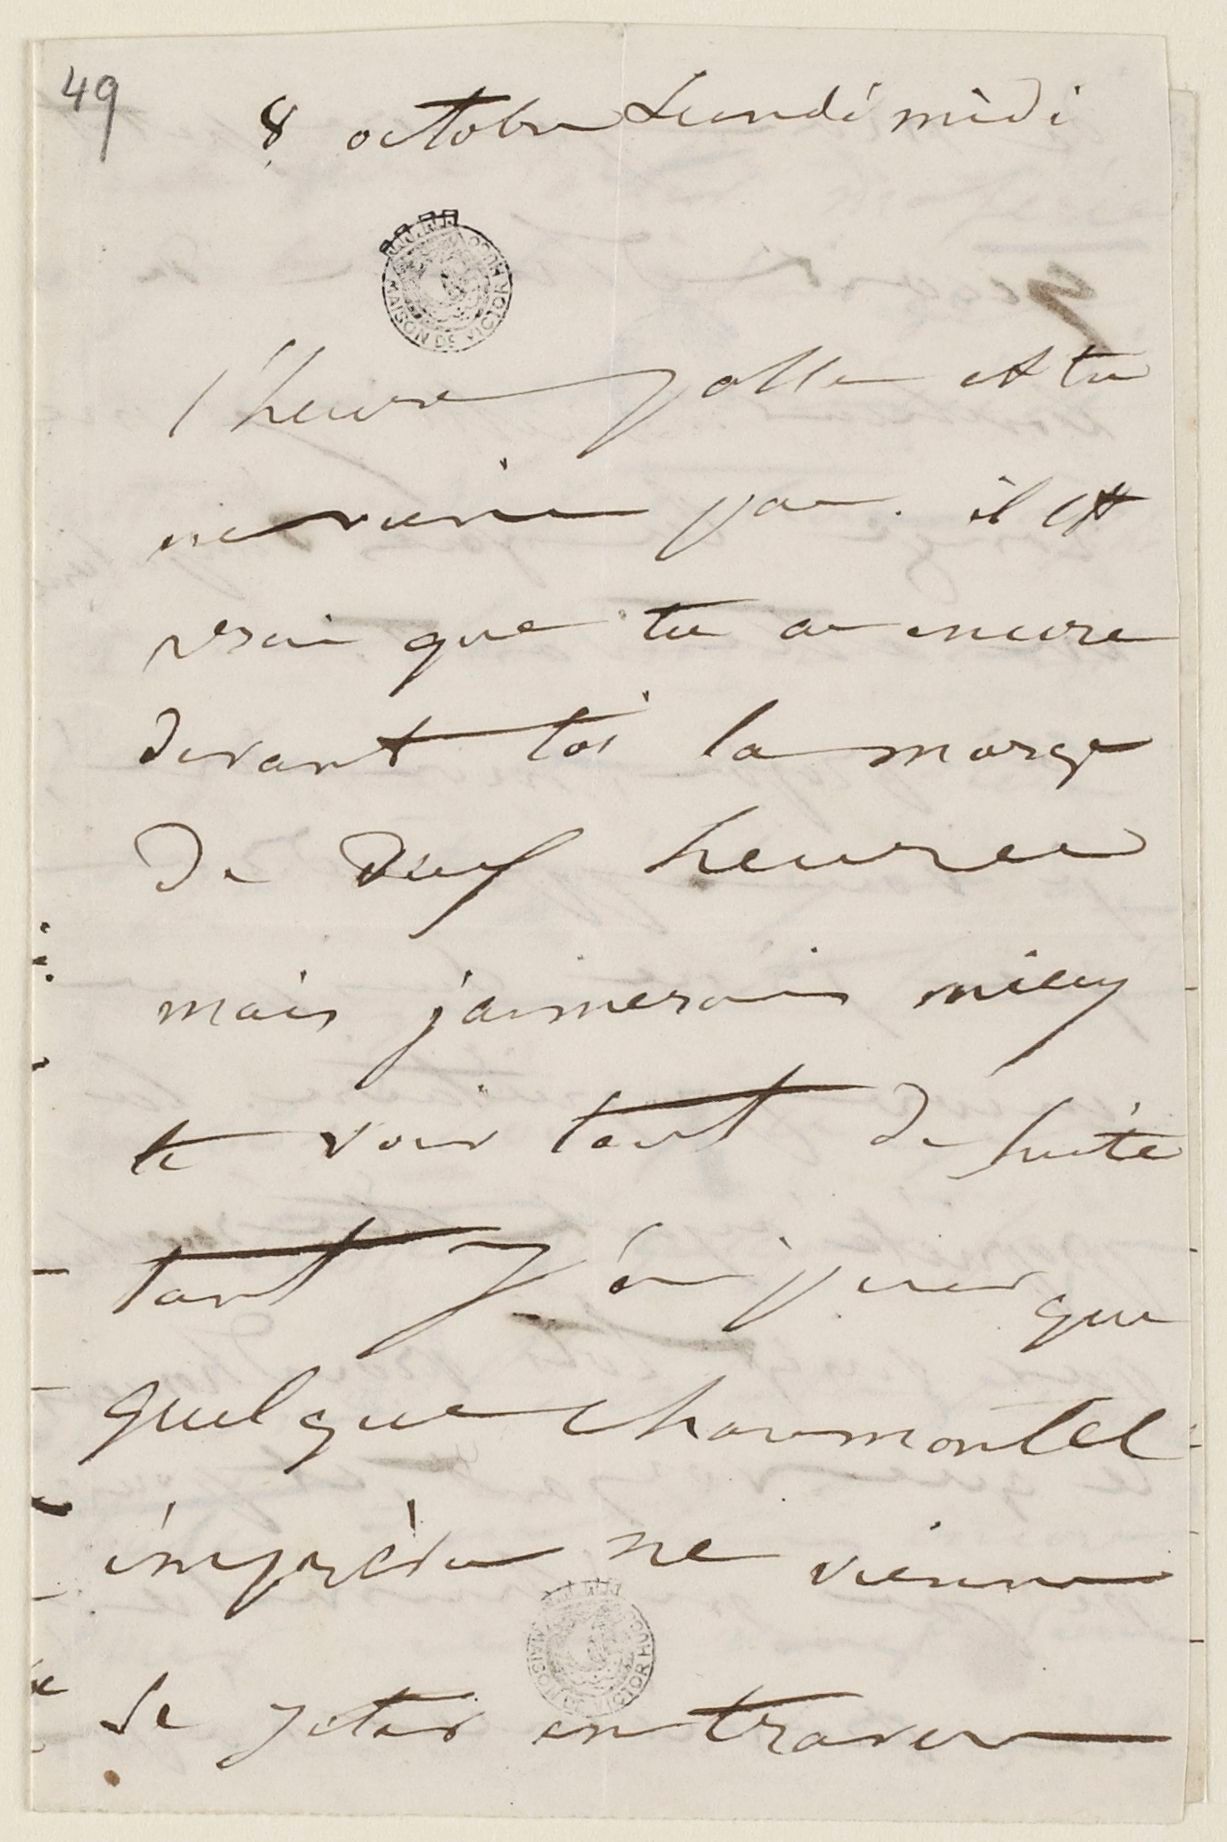 49
8 octobre Lundi midi
MAISON DE VICTOR HUGO
l'heure passe et tu
ne viens pas. il est
vrai que tu as encore
devant toi la marge
de deux heures
mais j'aimerais mieux
te voir tout de suite
tant j'ai peur que
quelque charmontel
imprévu ne vienne
MAISON DE VICTOR HUGO
se jeter en travers